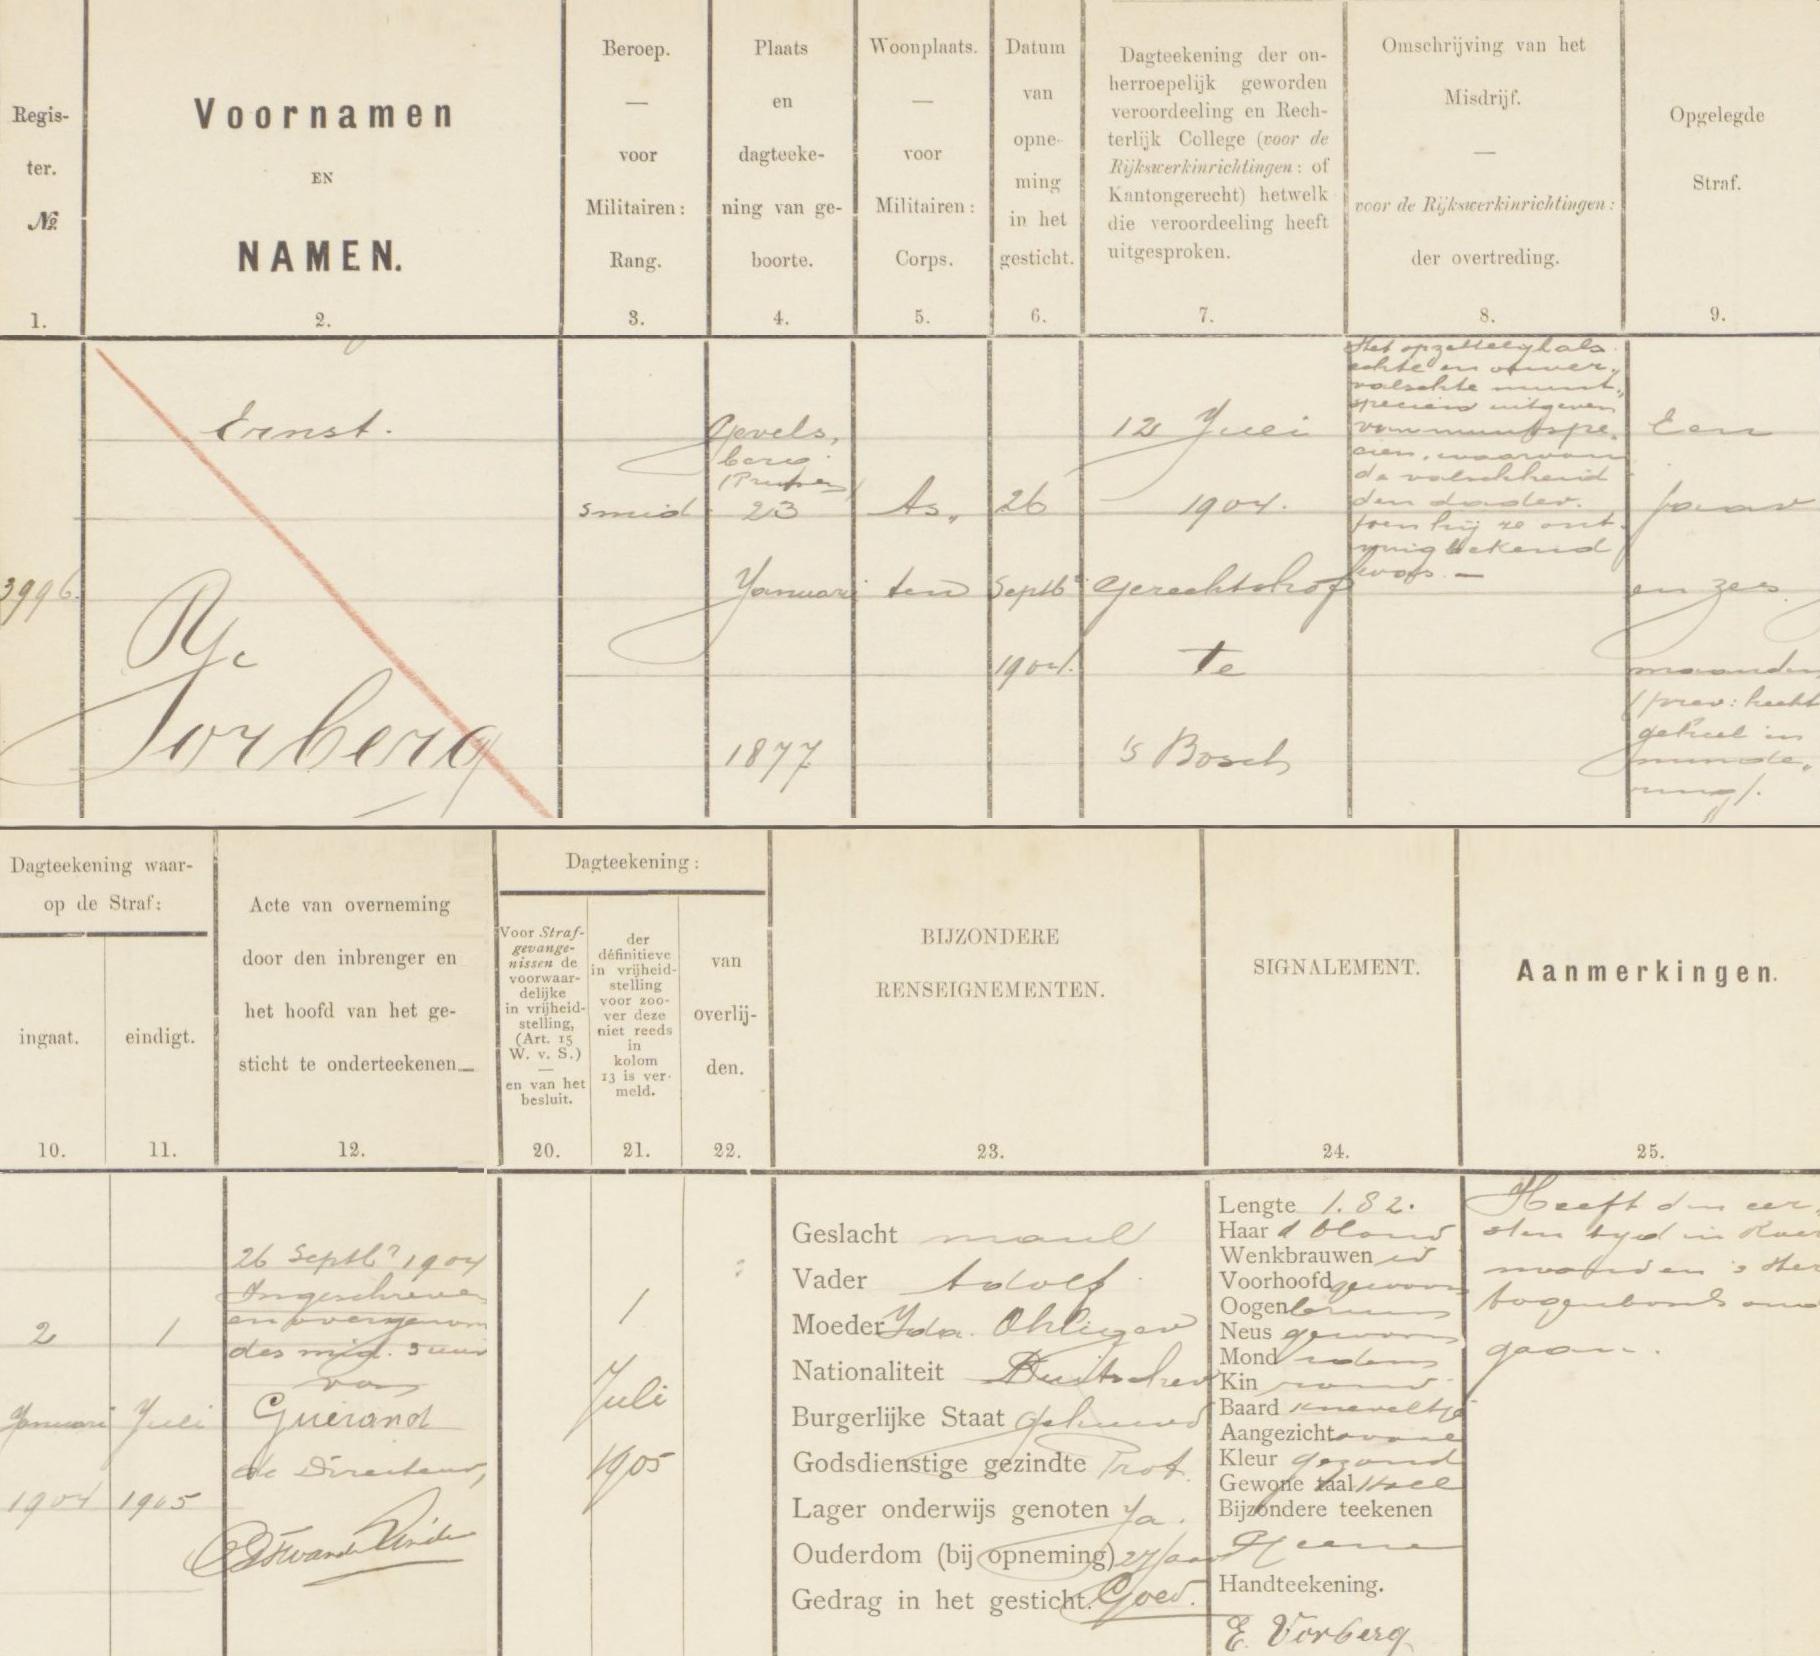 Regis-
ter.
№
1.
Voornamen
EN
NAMEN.
2.
Beroep.
—
voor
Militairen:
Rang.
3.
Plaats
en
dagteeke-
ning van ge-
boorte.
4.
Woonplaats.
—
voor
Militairen:
Corps.
5.
Datum
van
opne-
ming
in het
gesticht.
6.
Dagteekening der on-
herroepelijk geworden
veroordeeling en Rech-
terlijk College (voor de
Rijkswerkinrichtingen: of
Kantongerecht) hetwelk
die veroordeeling heeft
uitgesproken.
7.
Omschrijving van het
Misdrijf.
—
voor de Rijkswerkinrichtingen:
der overtreding.
8.
Opgelegde
Straf.
9.
3996.
Ernst.
Vorberg
smid
Gevels,
berg
(Pruisen)
23
Januari
1877
As,
ten
26
Septbr
1904.
12 Juli
1904.
Gerechtshof
te
's Bosch
Het opzettelijk als
echte en onver,
valschte munt,
speciën uitgeven
van muntspe,
ciën, waarvan
de valschheid
den dader,
toen hij ze ont,
ving bekend
was. —
Een
jaar
en zes
maanden
(prev: hecht
geheel in
minde,
ring).
Dagteekening waar-
op de Straf:
ingaat.
10.
eindigt.
11.
Acte van overneming
door den inbrenger en
het hoofd van het ge-
sticht te onderteekenen
12.
Dagteekening:
Voor Straf-
gevange-
nissen de
voorwaar-
delijke
in vrijheid-
stelling,
(Art. 15
W. v. S.)
—
en van het
besluit.
20.
der
définitieve
in vrijheid-
stelling
voor zoo-
ver deze
niet reeds
in
kolom
13 is ver-
meld.
21.
van
overlij-
den.
22.
BIJZONDERE
RENSEIGNEMENTEN.
23.
SIGNALEMENT.
24.
Aanmerkingen.
25.
2
Januari
1904
1
Juli
1905
26 Septbr 1904
Ingeschreven
en overgenom
des mid. 5 uur
van
Guérand
de Directeur,
1
Juli
1905
Geslacht manl
Vader Adolf
Moeder Ida Ohliger
Nationaliteit Duitscher
Burgerlijke Staat Gehuwd
Godsdienstige gezindte Prot.
Lager onderwijs genoten Ja.
Ouderdom (bij opneming) 27 jaar
Gedrag in het gesticht. Goed.
Lengte 1.82.
Haar d blond
Wenkbrauwen id
Voorhoofd gewoon
Oogen bruin
Neus gewoon
Mond idem
Kin rond
Baard kneveltje
Aangezicht ovaal
Kleur gezond
Gewone taal
Bijzondere teekenen
Geene
Handteekening.
E. Vorberg
Heeft den eer,
sten tyd in Roer
monden 's Her
togenbosch onder
gaan.